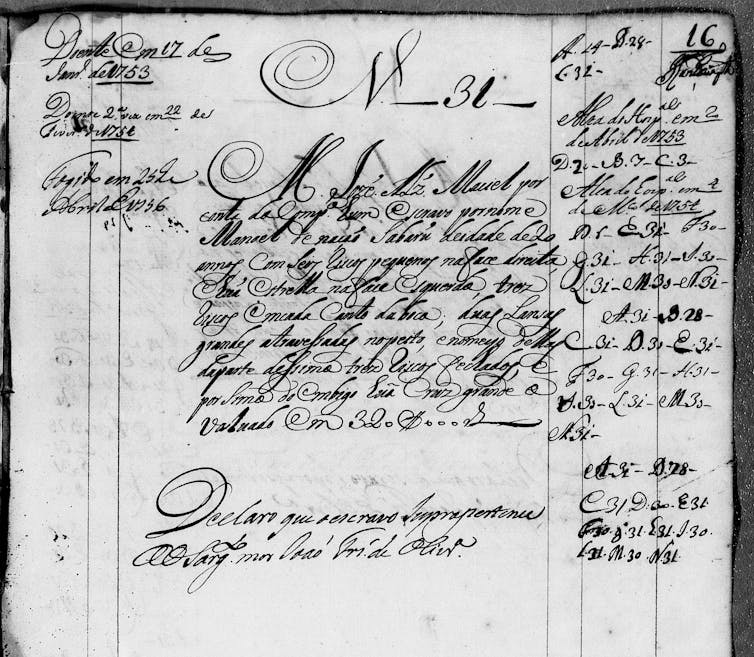 16
Doente em 17 de
Janr.º de 1753
Doente 2.ª vez em 22 de
Fever.º de 1754
Fogido em 25 de
Abril de 1756
N.º 31
M. José Alz. Maciel por
conta da Comp.ª hum Escravo por nome
Manoel de nação Sabarú de idade de 20
annos com seis riscos pequenos na face direita,
e hua estrella na face esquerda, tres
riscos em cada canto da boca, duas
grandes atravessadas no peito, e no meyo dellas
da parte de sima tres riscos fechados e
por sima do embigo hũa Cruz grande e
valuado em 320$000
Declaro que o escravo supra pertence
ao Sarg.to mor João Frz. de Olivr.ª
A. 24 - B. 28 -
C. 31 -
Alta do Hosp.al em 2
de Abril de 1753
D. 2 - B. 7 - C. 3 -
Alta do Hosp.al em 4
de M.ço de 1754
D. 5 - E. 31 - F. 30 -
G. 31 - H. 31 - I. 30 -
L. 31 - M. 30 - N. 31 -
A. 31 - B. 28 -
C. 31 - D. 30 - E. 31 -
F. 30 - G. 31 - H. 31 -
I. 30 - L. 31 - M. 30 -
N. 31 -
A. 31 - B. 28 -
C. 31 D. 30 - E. 31
F. 30 - G. 31 H. 31 I. 30
L. 31 M. 30 N. 31